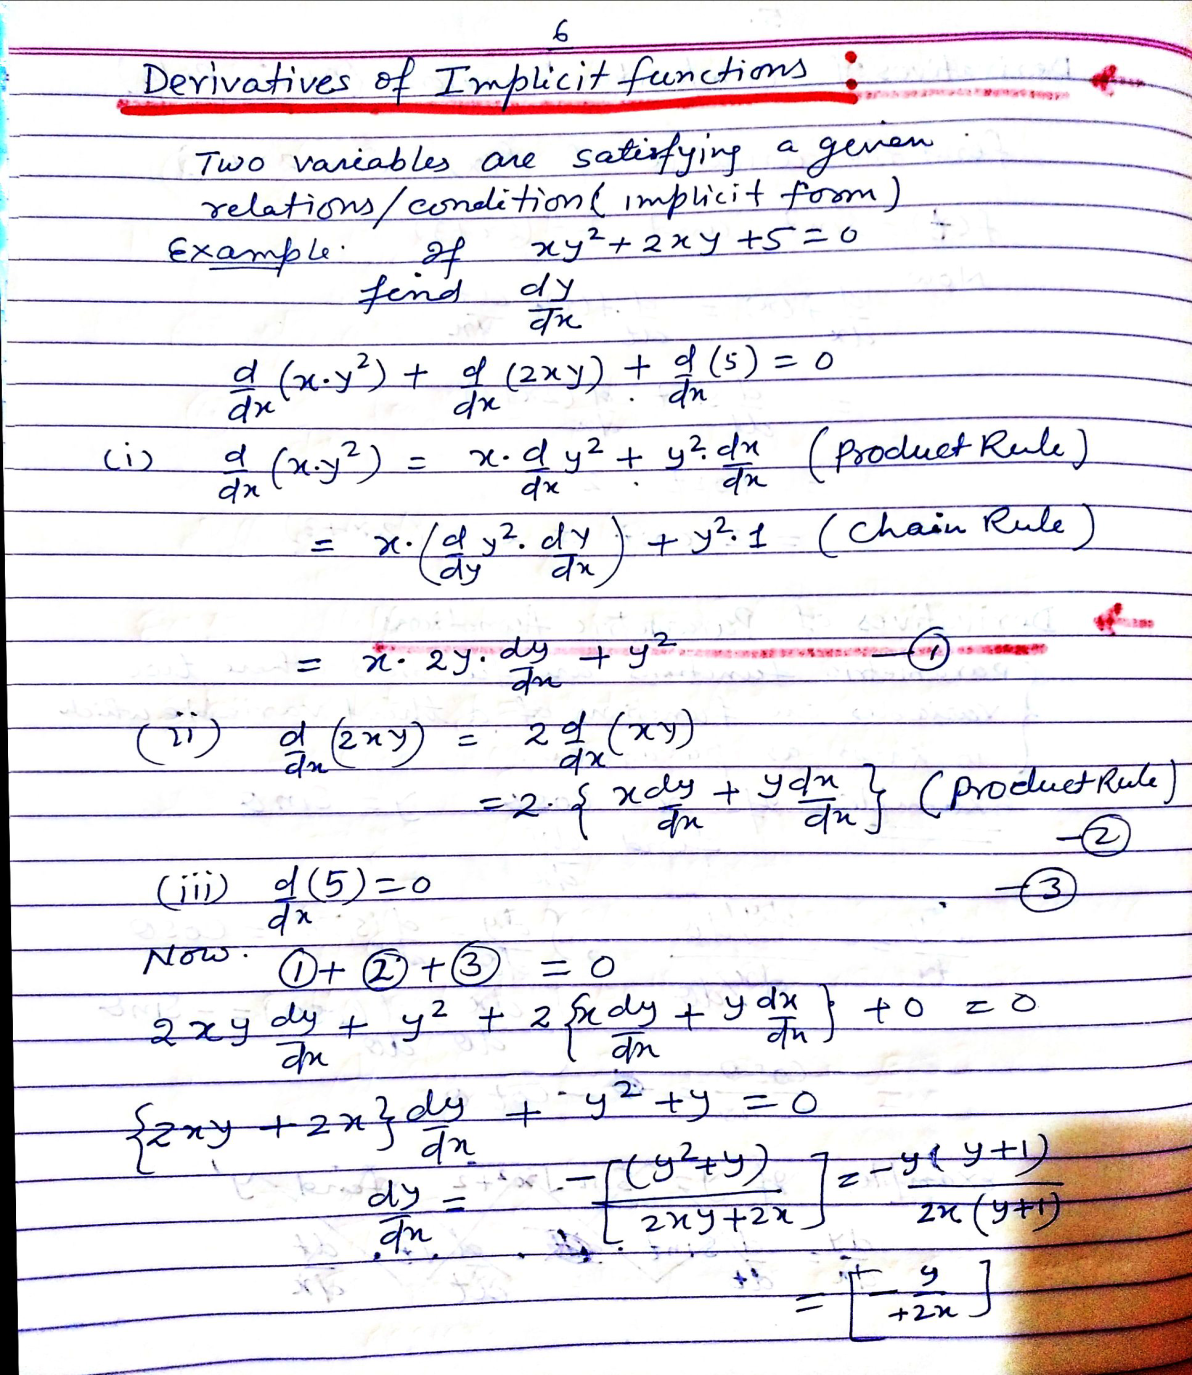 6
Derivatives of Implicit functions :
Two variables are satisfying a given
relations/condition( implicit form)
Example. If xy² + 2xy + 5 = 0
find dy/dx
d/dx (x.y²) + d/dx (2xy) + d/dx (5) = 0
(i) d/dx (x.y²) = x. d/dx y² + y². dx/dx (Product Rule)
= x. (d/dy y². dy/dx) + y². 1 (Chain Rule)
= x. 2y. dy/dx + y² —①
(ii) d/dx (2xy) = 2 d/dx (xy)
= 2. { x dy/dx + y dx/dx } (Product Rule)
—②
(iii) d/dx (5) = 0 —③
Now. ① + ② + ③ = 0
2xy dy/dx + y² + 2 {x dy/dx + y dx/dx} + 0 = 0
{2xy + 2x} dy/dx + y² + y = 0
dy/dx = -[(y²+y)/(2xy+2x)] = -y(y+1)/2x(y+1)
= [- y/+2x]